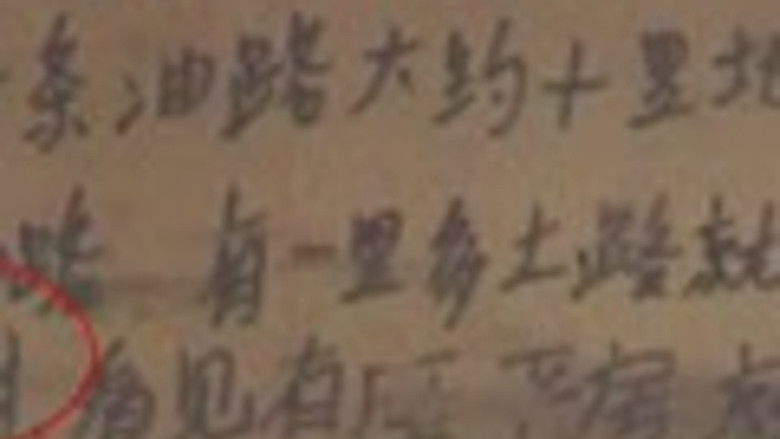 条油路大约十里地
路 有一里多土路就
看见有